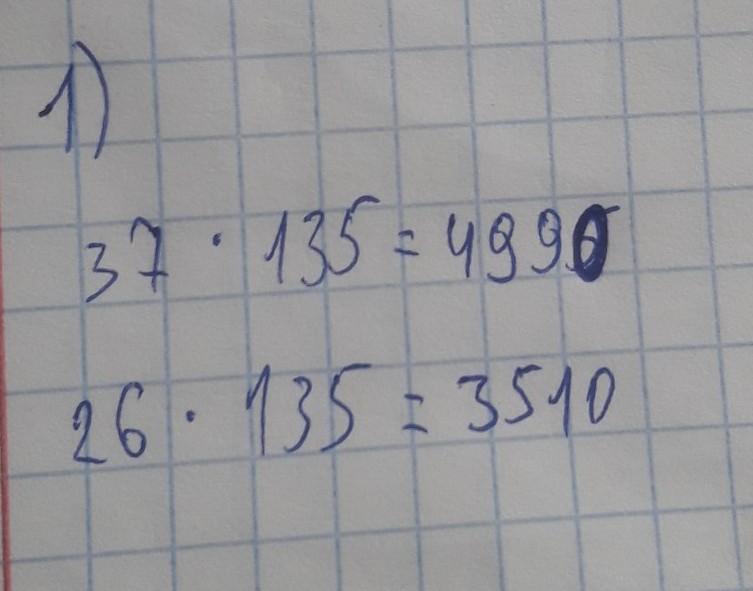 1)
37 · 135 = 4995
26 · 135 = 3510